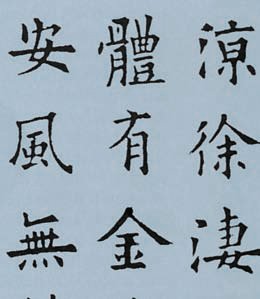 涼徐淒
體有金
安風無